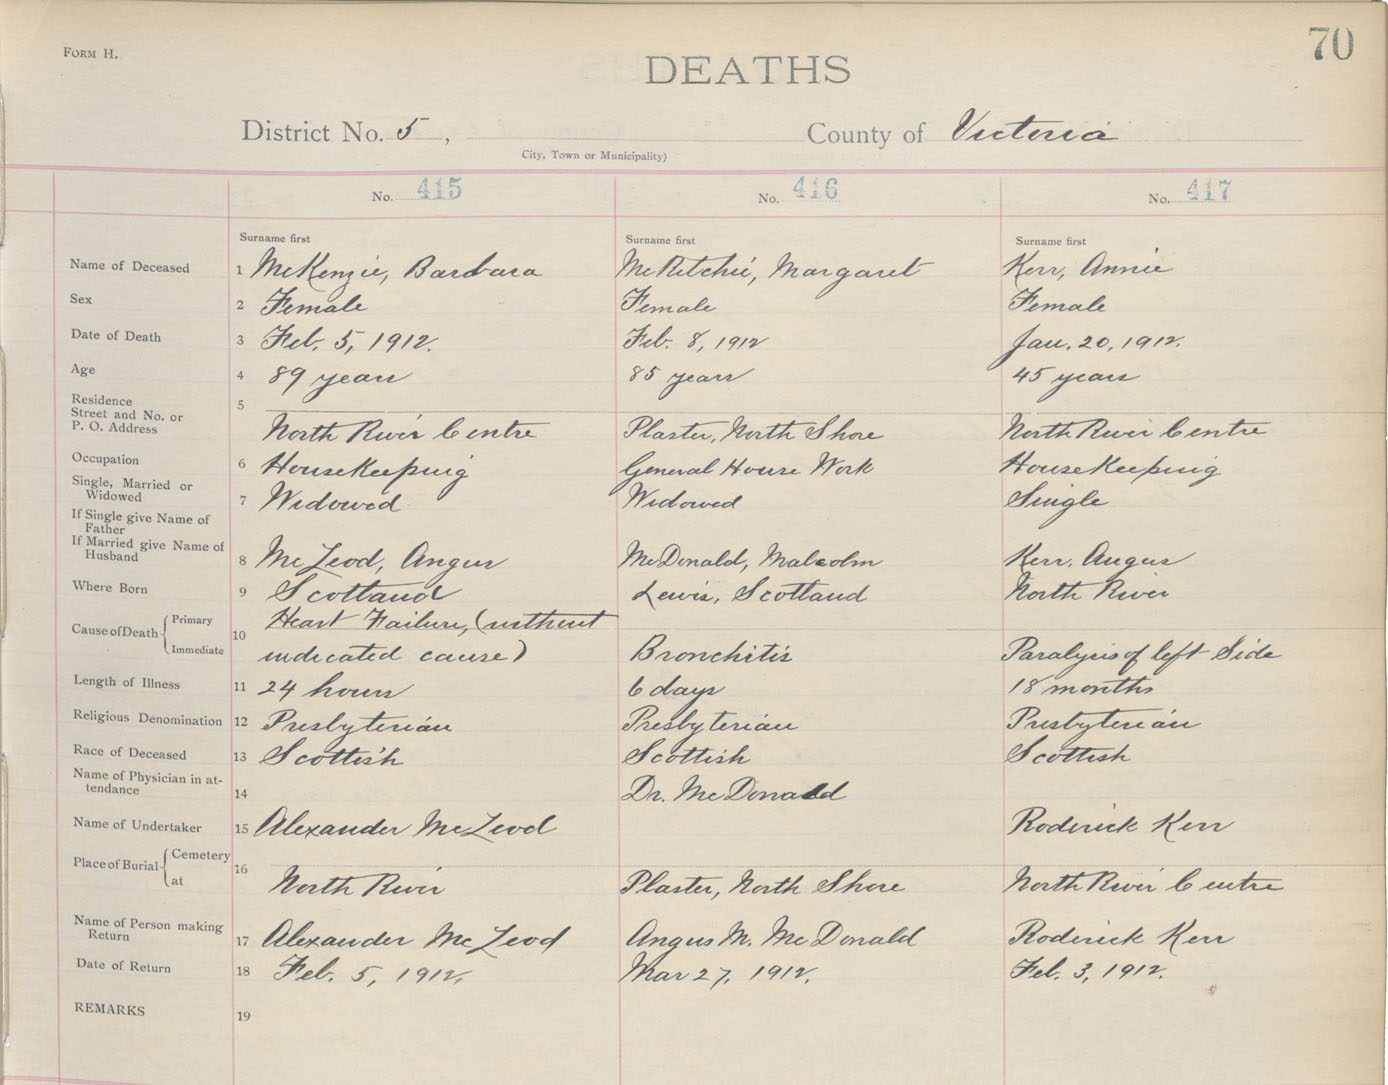 FORM H.
70
DEATHS
District No. 5, County of Victoria
City, Town or Municipality)
No. 415 No. 416 No. 417
Surname first Surname first Surname first
Name of Deceased 1 McKenzie, Barbara McRitchie, Margaret Kerr, Annie
Sex 2 Female Female Female
Date of Death 3 Feb. 5, 1912. Feb. 8, 1912 Jan. 20, 1912.
Age 4 89 years 85 years 45 years
Residence 5
Street and No. or
P. O. Address North River Centre Plaster, North Shore North River Centre
Occupation 6 Housekeeping General House Work Housekeeping
Single, Married or
Widowed 7 Widowed Widowed Single
If Single give Name of
Father
If Married give Name of
Husband 8 McLeod, Angus McDonald, Malcolm Kerr, Angus
Where Born 9 Scotland Lewis, Scotland North River
Cause of Death Primary 10 Heart Failure, (without
Immediate indicated cause) Bronchitis Paralysis of left Side
Length of Illness 11 24 hours 6 days 18 months
Religious Denomination 12 Presbyterian Presbyterian Presbyterian
Race of Deceased 13 Scottish Scottish Scottish
Name of Physician in at-
tendance 14 Dr. McDonald
Name of Undertaker 15 Alexander McLeod Roderick Kerr
Place of Burial Cemetery 16
at North River Plaster, North Shore North River Centre
Name of Person making
Return 17 Alexander McLeod Angus M. McDonald Roderick Kerr
Date of Return 18 Feb. 5, 1912. Mar 27, 1912. Feb. 3, 1912.
REMARKS 19